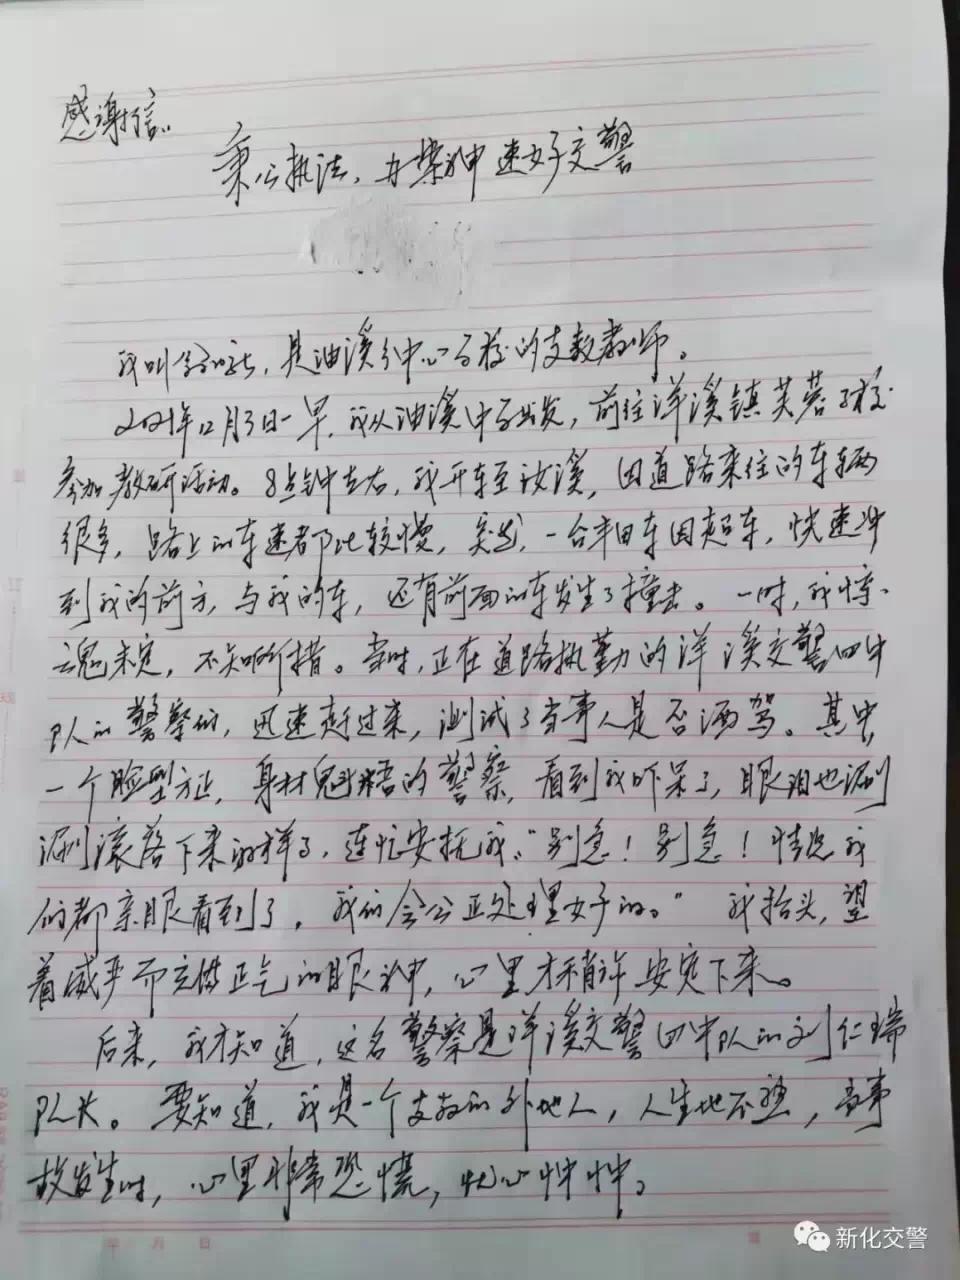 感谢信
秉公执法，办案神速好交警
我叫，是油溪乡中心学校的支教教师。
2021年12月3日一早，我从油溪中学出发，前往洋溪镇芙蓉学校
参加教研活动。8点钟左右，我开车至汝溪，因道路来往的车辆
很多，路上的车速都比较慢，突然，一台丰田车因超车，快速冲
到我的前方，与我的车，还有前面的车发生了撞击。一时，我惊
魂未定，不知所措。当时，正在道路执勤的洋溪交警四中
队的警察们，迅速赶过来，测试了当事人是否酒驾。其中，
一个脸型方正，身材魁梧的警察，看到我吓呆了，眼泪也唰
唰滚落下来的样子，连忙安抚我："别急！别急！情况我
们都亲眼看到了，我们会公正处理好的。" 我抬头，望
着威严而充满正气的眼神，心里才稍许安定下来。
后来，我才知道，这名警察是洋溪交警四中队的刘仁瑞
队长。要知道，我是一个支教的外地人，人生地不熟，当事
故发生时，心里非常恐慌，忧心忡忡。
年 月 日
新化交警